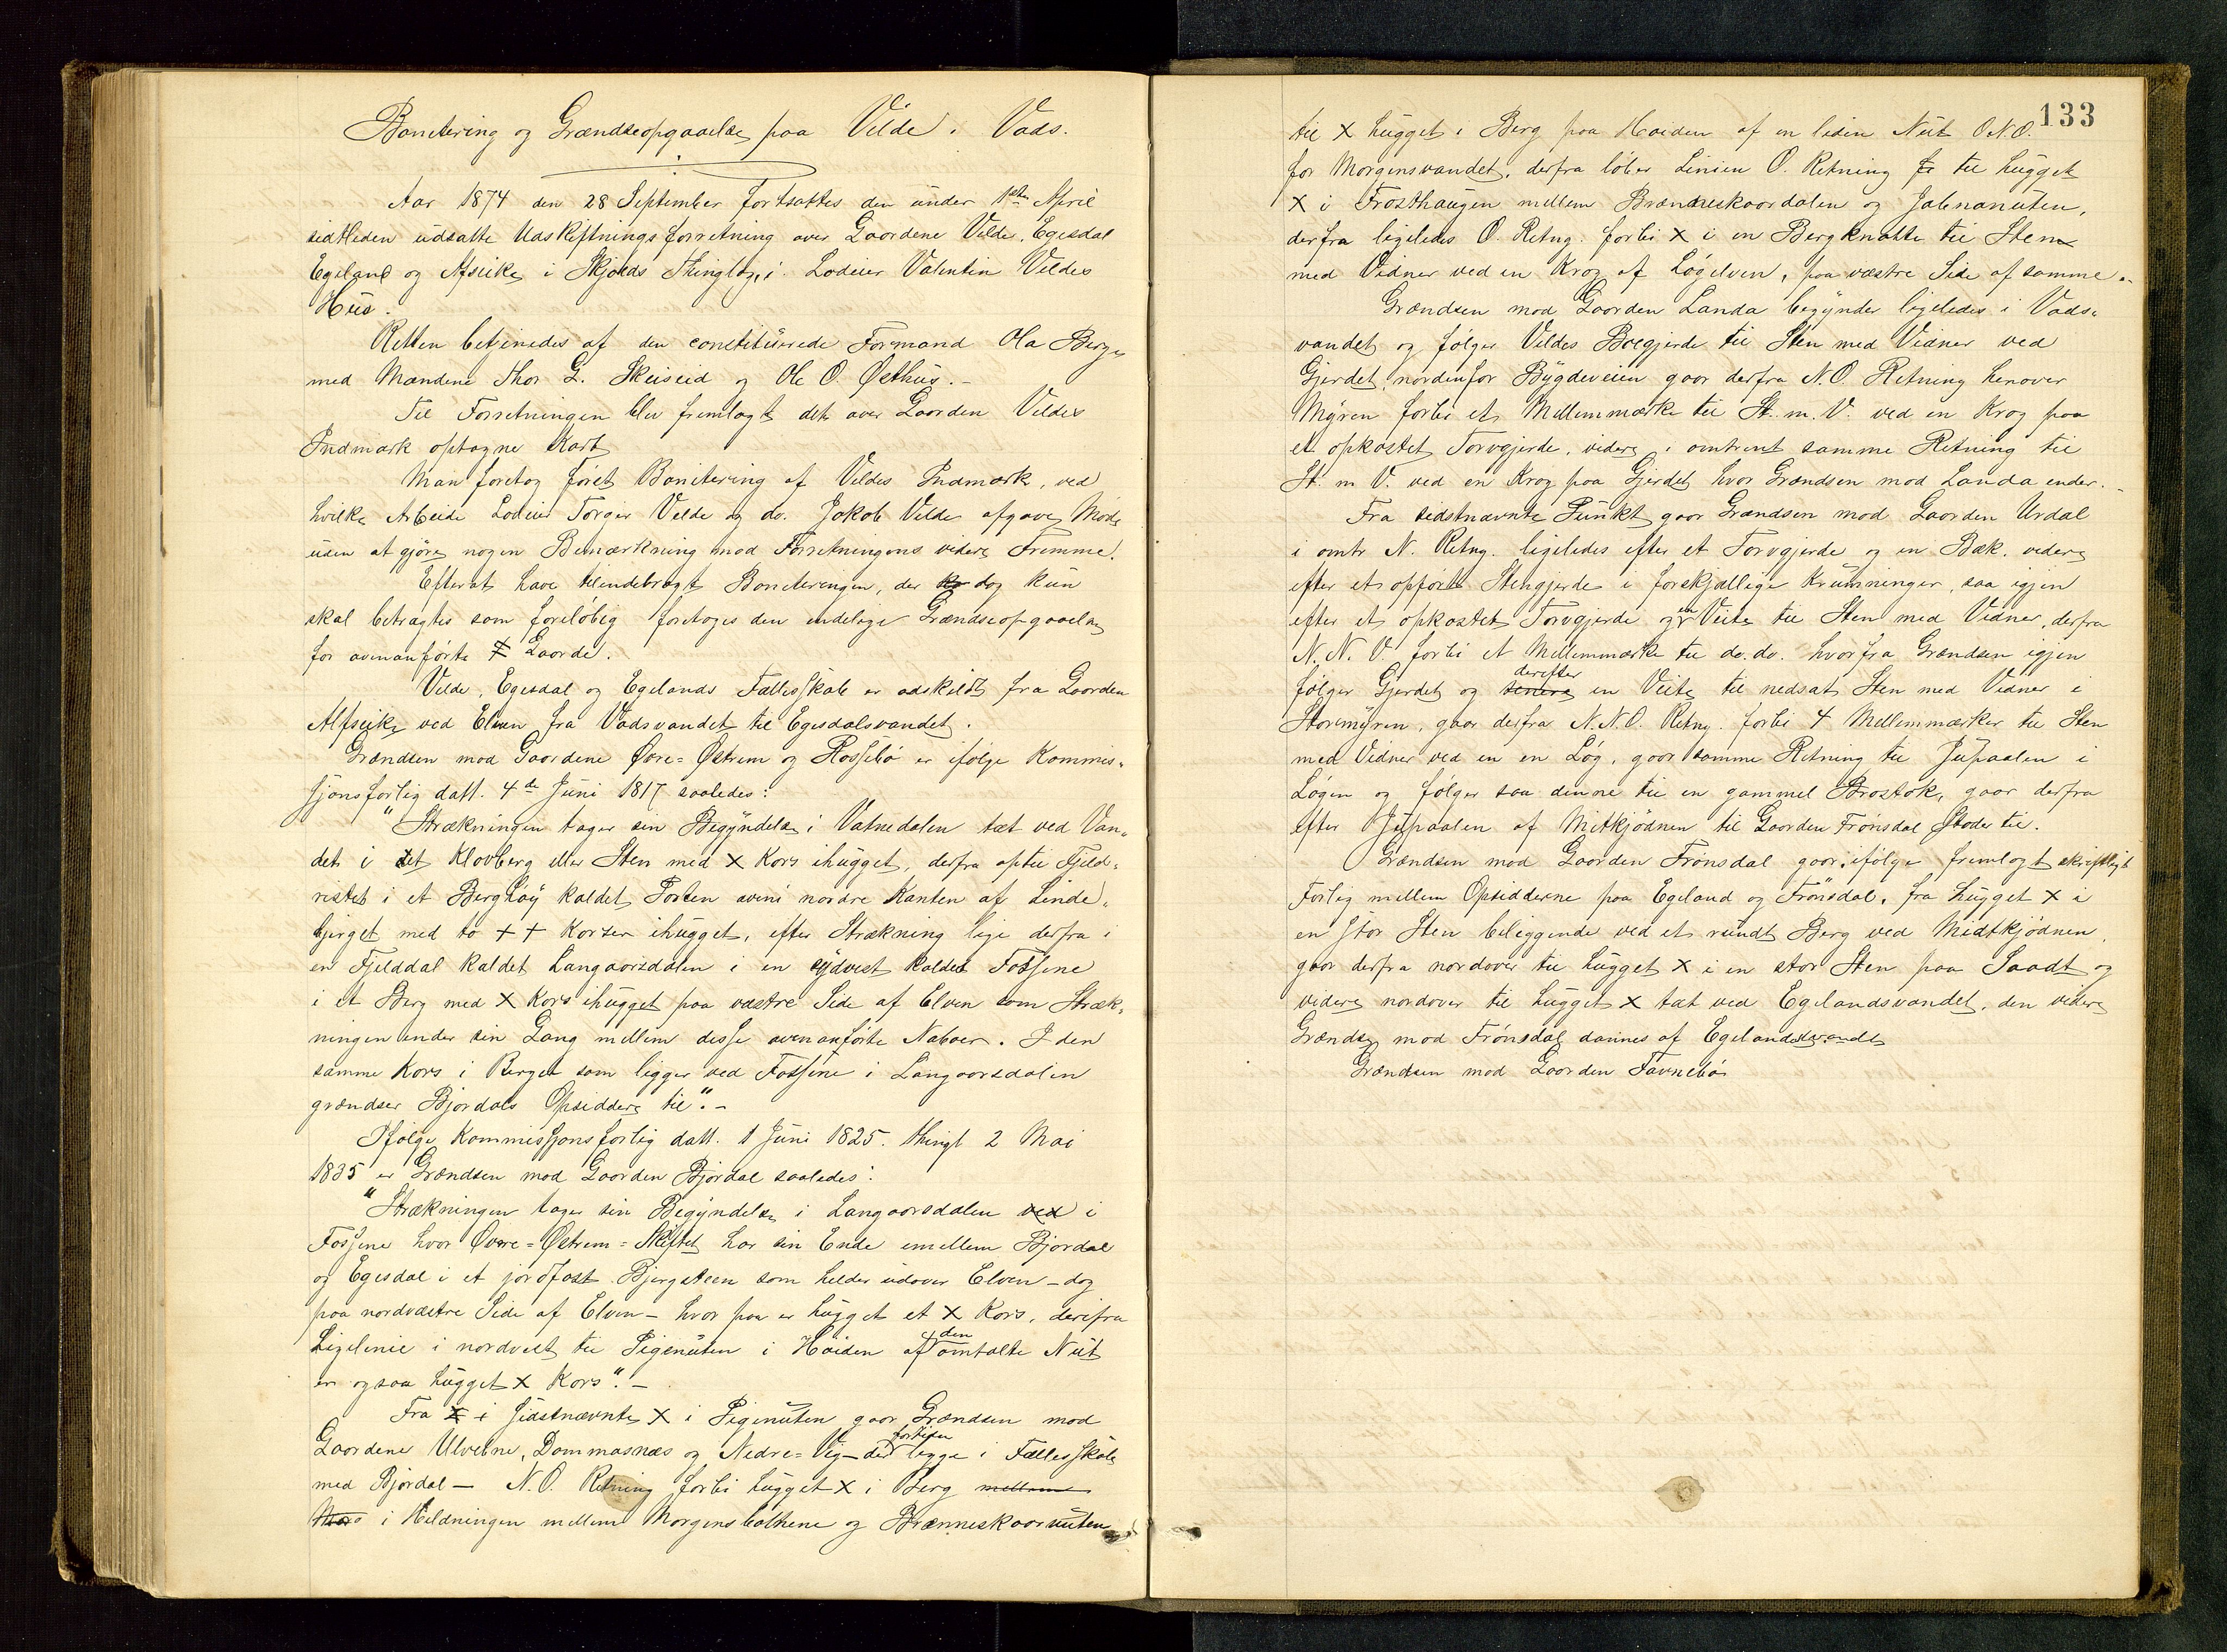 Bonitering og Grændseopgaaelse paa Velde i Vads.
Aar 1874 den 28 September fortsattes den under 1ste April
sidstleden udsatte Udskiftningsforretning over Gaardene Velde, Egesdal
Egeland og Alfseike i Skjolds Thinglag, i Lodeier Valentin Veldes
Hus.
Retten betjenedes af den constituerede Formand Ola Berge
med Mændene Thor G. Skeiseid og Ole O. Østhus.-
Til Forretningen blev fremlagt det over Gaarden Veldes
Indmark optagne Kart
Man foretog først Bonitering af Veldes Indmark, ved
hvilke Arbeide Lodeier Torger Velde og do. Jakob Velde afgave Møde
uden at gjøre nogen Bemærkning mod Forretningens videre Fremme.
Efterat have tilendebragt Boniteringen, der dog kun
skal betragtes som foreløbig foretoges den endelige Grændseopgaaelse
for ovenanførte Gaarde.
Velde, Egesdal og Egelands Fællesskab er adskildt fra Gaarden
Alfseike ved Elven fra Vadsvandet til Egesdalsvandet.
Grændsen mod Gaardene Øvre=Østrem og Rossebø er ifølge Kommis-
sjonsforlig datt. 4de Juni 1817 saaledes:
"Strækningen tager sin Begyndelse i Vatnedalen tæt ved Van-
det i et Klovberg eller Sten med X Kors ihugget, derfra optil Fjeld-
ristet i et Berghøy kaldet Porten oveni nordre Kanten af Linde-
bjerget med to ++ Korser ihugget, efter Strækning lige derfra i
en Fjelddal kaldet Langaarsdalen i en sydvest kaldet Fossene
i et Berg med X Kors ihugget paa væstre Side af Elven som Stræk-
ningen ender sin Gang mellem disse ovenanførte Naboer. I den
samme Kors i Berget som ligger ved Fossene i Langaarsdalen
grændser Bjordals Opsiddere til".-
Ifølge Kommissjonsforlig datt. 1 Juni 1825. thingl 2 Mai
1835 er Grændsen mod Gaarden Bjordal saaledes:
"Strækningen tager sin Begyndelse i Langaarsdalen ved i
Fossene hvor Øvere=Østrem=Skiftet har sin Ende emellem Bjordal
og Egesdal i et jordfast Bjergsteen som helder udover Elven - dog
paa nordvæstre Side af Elven - hvor paa er hugget et X Kors, derifra
Ligelinie i nordvest til Pigenuten i Høiden af den omtalte Nut
er ogsaa hugget X Kors".-
Fra X i sidstnævnte X i Pigenuten gaar Grændsen mod
Gaardene Ulvene, Dommasnæs og Nedre=Vig - der fortiden ligge i Fællesskab
med Bjordal - N.O. Retning forbi hugget X i Berg mellem
Mor i Heldningen mellem Morgensbotnene og Brænneskaarnuten
133
til X hugget i Berg paa Høiden af en liden Nut O.N.O.
for Morgensvandet, derfra løber Linien O. Retning fr til hugget
X i Frosthaugen mellem Brænneskaardalen og Jalenanuten,
derfra ligeledes O. Retng. forbi X i en Bergknatte til Sten
med Vidner ved en Krog af Løgelven, paa væstre Side af samme.
Grændsen mod Gaarden Landa begynder ligeledes i Vads-
vandet og følger Veldes Bøegjerde til Sten med Vidner ved
Gjerdet nordenfor Bygdeveien gaar derfra N.O. Retning henover
Myren forbi et Mellemmærke til St. m. V. ved en Krog paa
et opkastet Torvgjerde, videre i omtrent samme Retning til
St. m V. ved en Krog paa Gjerdet hvor Grændsen mod Landa ender.
Fra sidstnævnte Punkt gaar Grændsen mod Gaarden Urdal
i omtr N. Retng. ligeledes efter et Torvgjerde og en Bæk, videre
efter et opført Stengjerde i forskjællige Krumninger, saa igjen
efter et opkastet Torvgjerde og en Veite til Sten med Vidner, derfra
N.N.V. forbi et Mellemmærke til do. do. hvorfra Grændsen igjen
følger Gjerdet og senere derefter en Veite til nedsat Sten med Vidner i
Storemyren, gaar derfra N.N.O. Retng. forbi 4 Mellemmærker til Sten
med Vidner ved en en Løg, gaar samme Retning til Jupaalen i
Løgen og følger saa denne til en gammel Brostok, gaar derfra
efter Jupaalen af Mitkjødnen til Gaarden Frønsdal støder til.
Grændsen mod Gaarden Frønsdal gaar ifølge fremlagt skriftligt
Forlig mellem Opsidderne paa Egeland og Frønsdal, fra hugget X i
en stor Sten beliggende ved et rundt Berg ved Midtkjødnen,
gaar derfra nordover til hugget X i en stor Sten paa Saadt og
videre nordover til hugget X tæt ved Egelandsvandet, den videre
Grændse mod Frønsdal dannes af Egelandsvandet
Grændsen mod Gaarden Favnebø